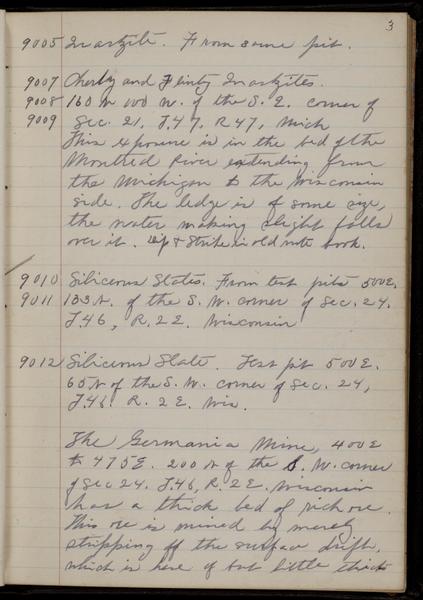 3
9005 Quartzite. From same pit.
9007 Cherty and Flinty Quartzites.
9008 160 N 100 W. of the S. E. corner of
9009 Sec. 21, T.47, R 47, Mich
This exposure is in the bed of the
Montreal River extending from
the Michigan to the Wisconsin
side. The ledge is of some size,
the water making slight falls
over it. Dip & Strike in old note book.
9010 Siliceous Slates. From test pits 500 E.
9011 133 N. of the S. W. corner of Sec. 24.
T.46, R. 2 E. Wisconsin
9012 Siliceous Slate. Test pit 500 E.
65 N of the S. W. corner of Sec. 24,
T.46 R. 2 E. Wis.
The Germania Mine, 400 E
to 475 E. 200 N of the S. W. corner
of Sec 24. T.46, R. 2 E. Wisconsin
has a thick bed of rich ore.
This ore is mined by merely
stripping off the surface drift,
which is here of but little thick